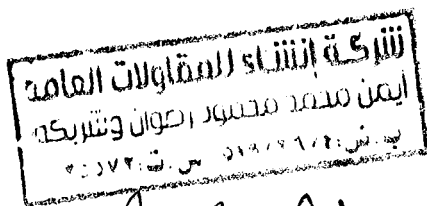 شركة إنشاء للمقاولات العامه
أيمن محمد محمود رضوان وشريكه
ب.ض: س.ت: